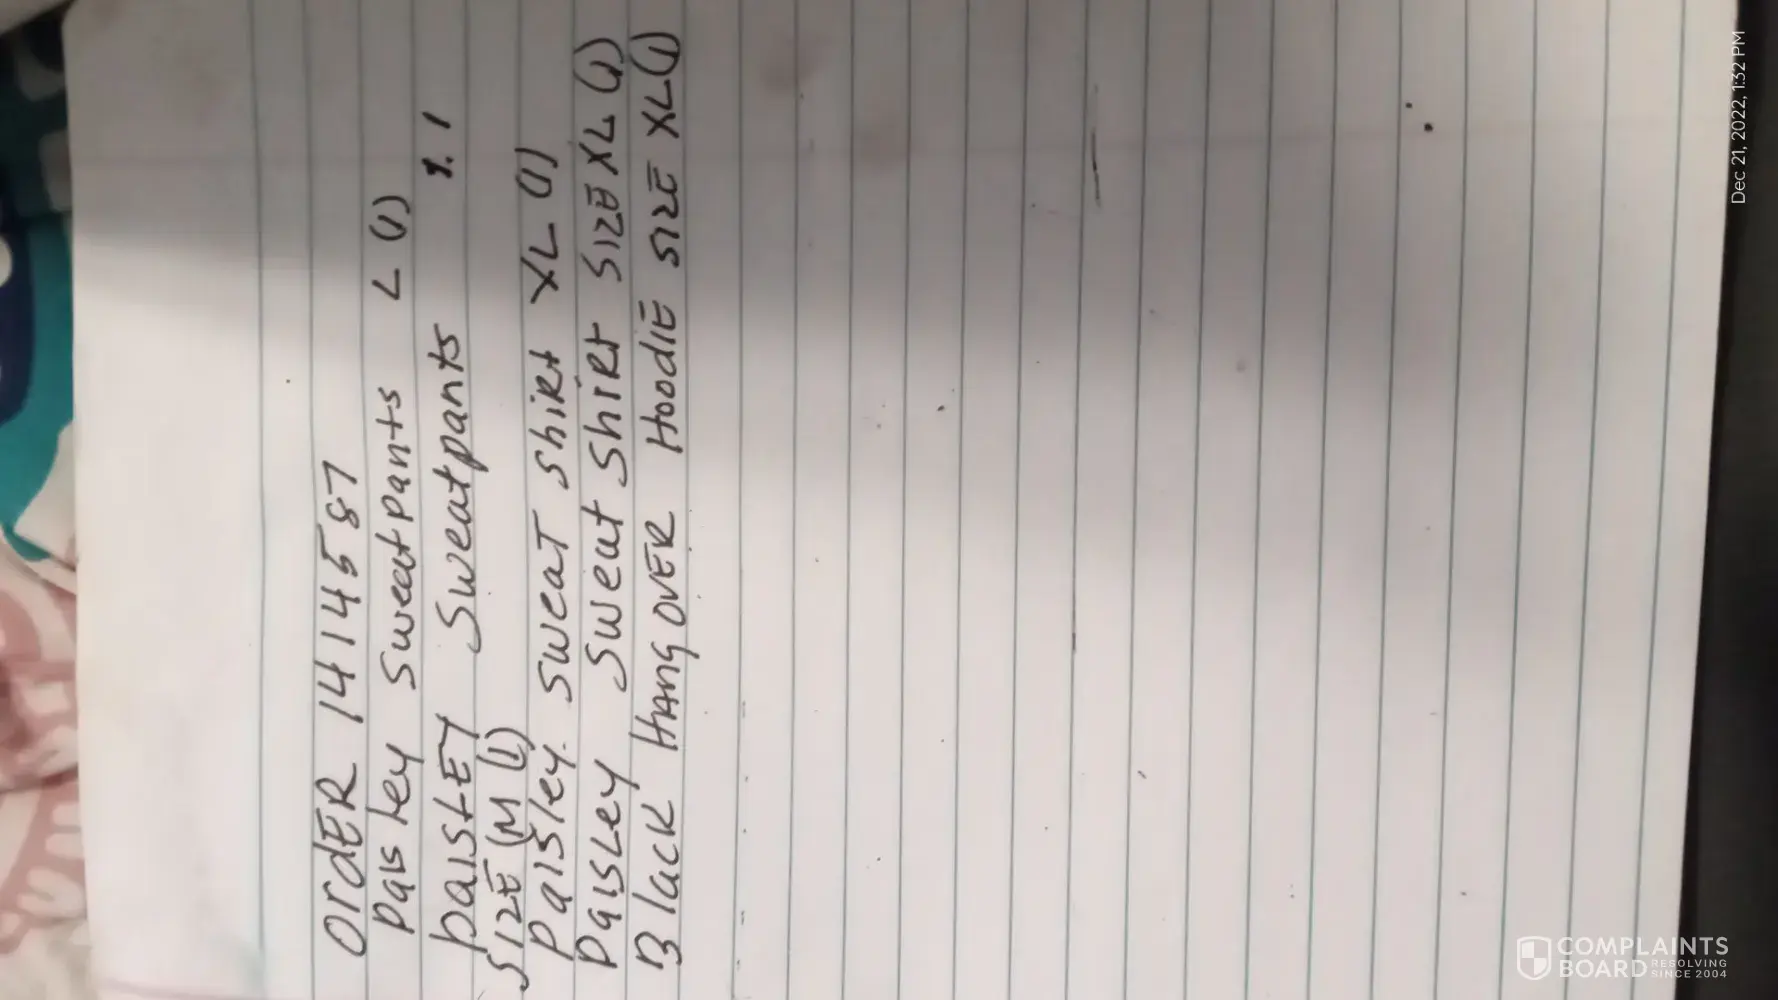 OrdER 1414587
Paisley Sweatpants L (1)
PaisLEY Sweatpants 1
SIZE (M (1)
Paisley Sweat Shirt XL (1)
PaisLey Sweat Shirt SIZE XL (1)
Black HangOVER HoodiE SIZE XL (1)
Dec 21, 2022, 1:32 PM
COMPLAINTS
BOARD RESOLVING SINCE 2004